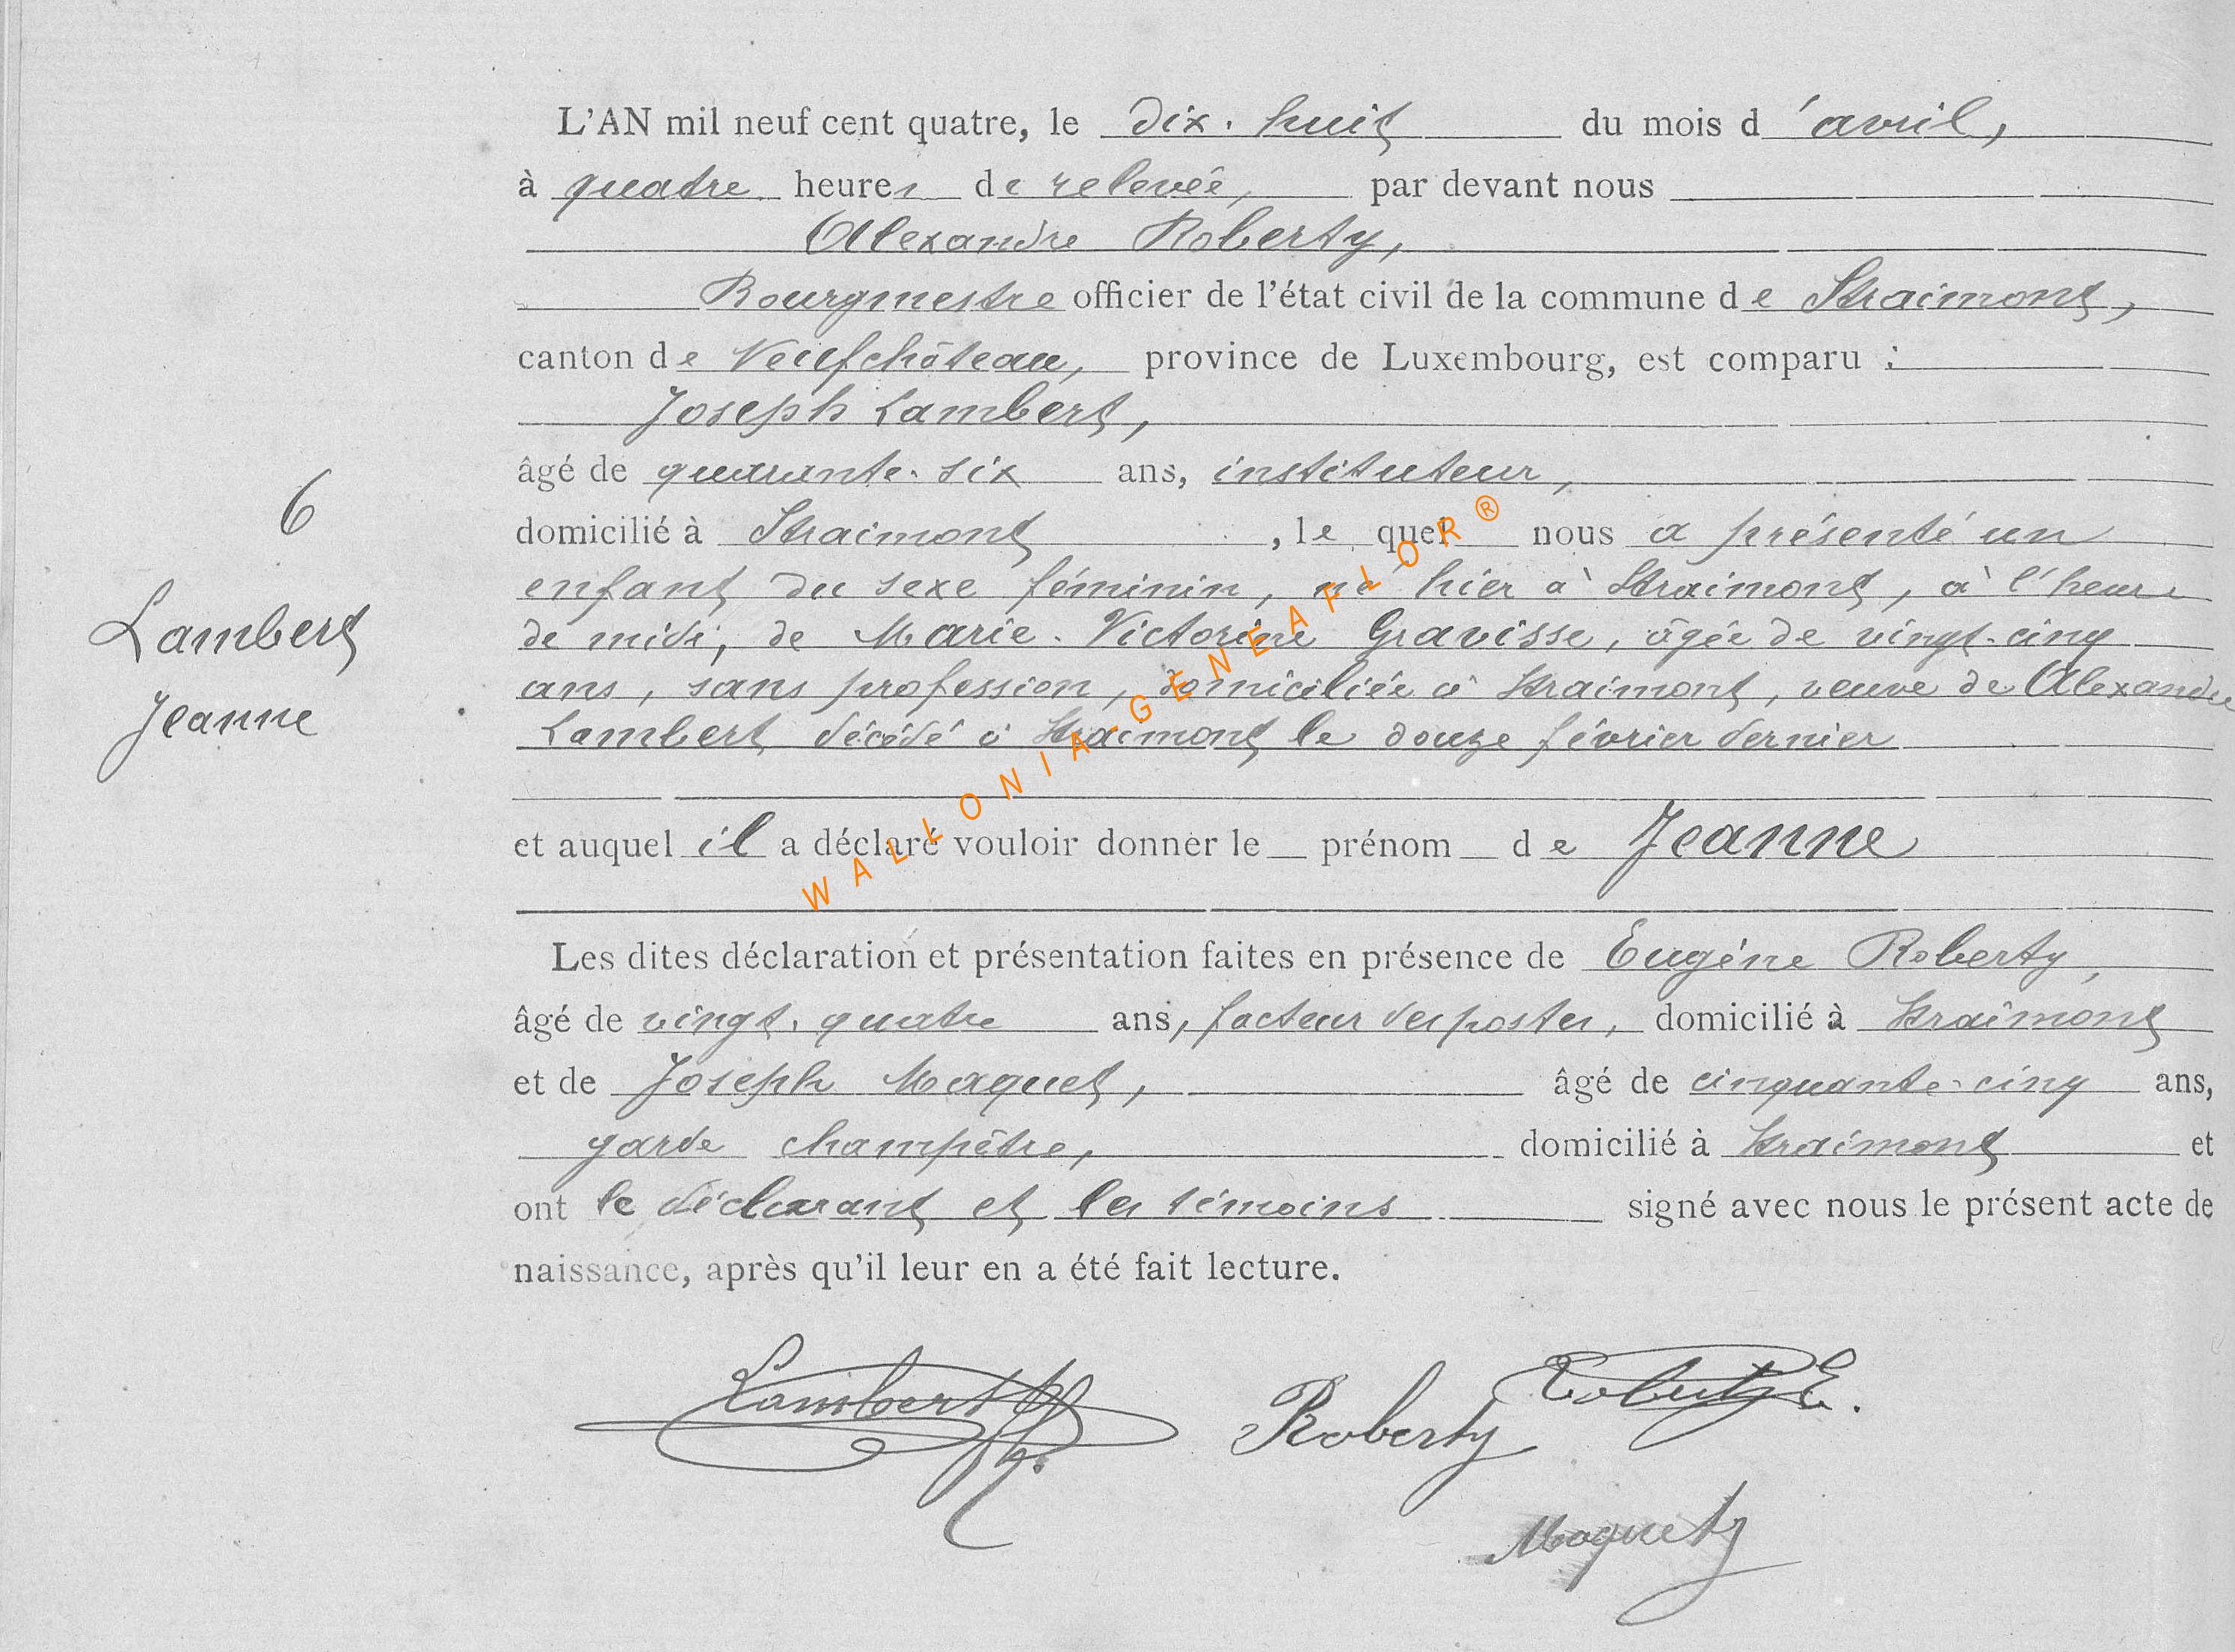 L'AN mil neuf cent quatre, le dix-huit du mois d'avril,
à quatre heures de relevée, par devant nous
Alexandre Roberty,
Bourgmestre officier de l'état civil de la commune de Straimont,
canton de Neufchâteau, province de Luxembourg, est comparu :
Joseph Lambert,
âgé de quarante-six ans, instituteur,
domicilié à Straimont, le quel nous a présenté un
enfant du sexe féminin, né hier à Straimont, à l'heure
de midi, de Marie-Victorine Gravisse, âgée de vingt-cinq
ans, sans profession, domiciliée à Straimont, veuve de Alexandre
Lambert décédé à Straimont le douze février dernier
et auquel il a déclaré vouloir donner le prénom de Jeanne
Les dites déclaration et présentation faites en présence de Eugène Roberty,
âgé de vingt-quatre ans, facteur des postes, domicilié à Straimont
et de Joseph Maquet, âgé de cinquante-cinq ans,
garde champêtre, domicilié à Straimont et
ont le déclarant et les témoins signé avec nous le présent acte de
naissance, après qu'il leur en a été fait lecture.
6
Lambert
Jeanne
WALLONIA-GENEAFLOR®
Lambert
Roberty
Roberty E.
Maquet